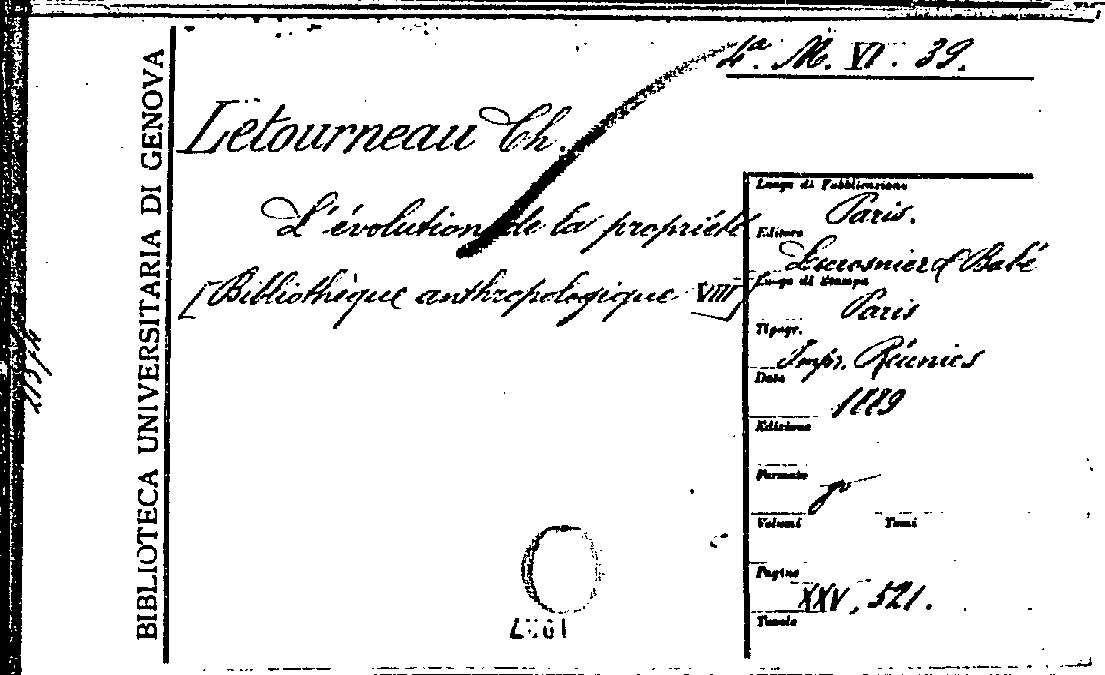 4a. M. VI. 39.
BIBLIOTECA UNIVERSITARIA DI GENOVA
Letourneau Ch.
L'évolution de la propriété
[Bibliothèque anthropologique VIII]
Luogo di Pubblicazione
Paris.
Editore
Lecrosnier & Babé
Luogo di Stampa
Paris
Tipogr.
Impr. Réunies
Data
1889
Edizione
Formato
Volumi Tomi
Pagine
XXV, 521.
Tavole